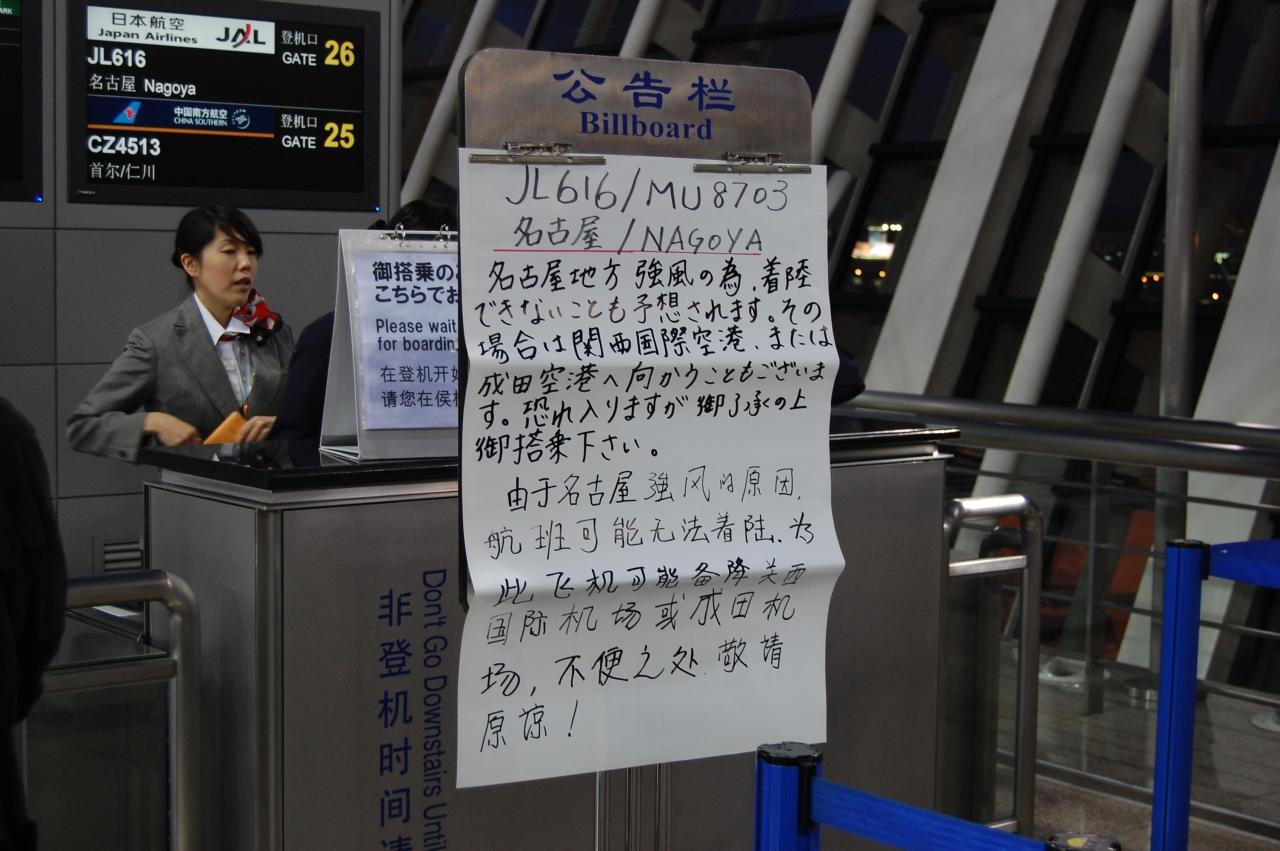 日本航空
Japan Airlines
JAL
登机口
GATE 26
JL616
名古屋 Nagoya
中国南方航空
CHINA SOUTHERN
登机口
GATE 25
CZ4513
首尔/仁川
公告栏
Billboard
JL616/MU8703
名古屋/NAGOYA
名古屋地方強風の為、着陸
できないことも予想されます。その
場合は関西国際空港、または
成田空港へ向かうこともございま
す。恐れ入りますが御了承の上
御搭乗下さい。
由于名古屋強风的原因,
航班可能无法着陆.为
此飞机可能备降关西
国际机场或成田机
场,不便之处.敬请
原谅!
御搭乗の
こちらでお
Please wait
for boardin
在登机开始
请您在侯机
非登机时间请
Don't Go Downstairs Until